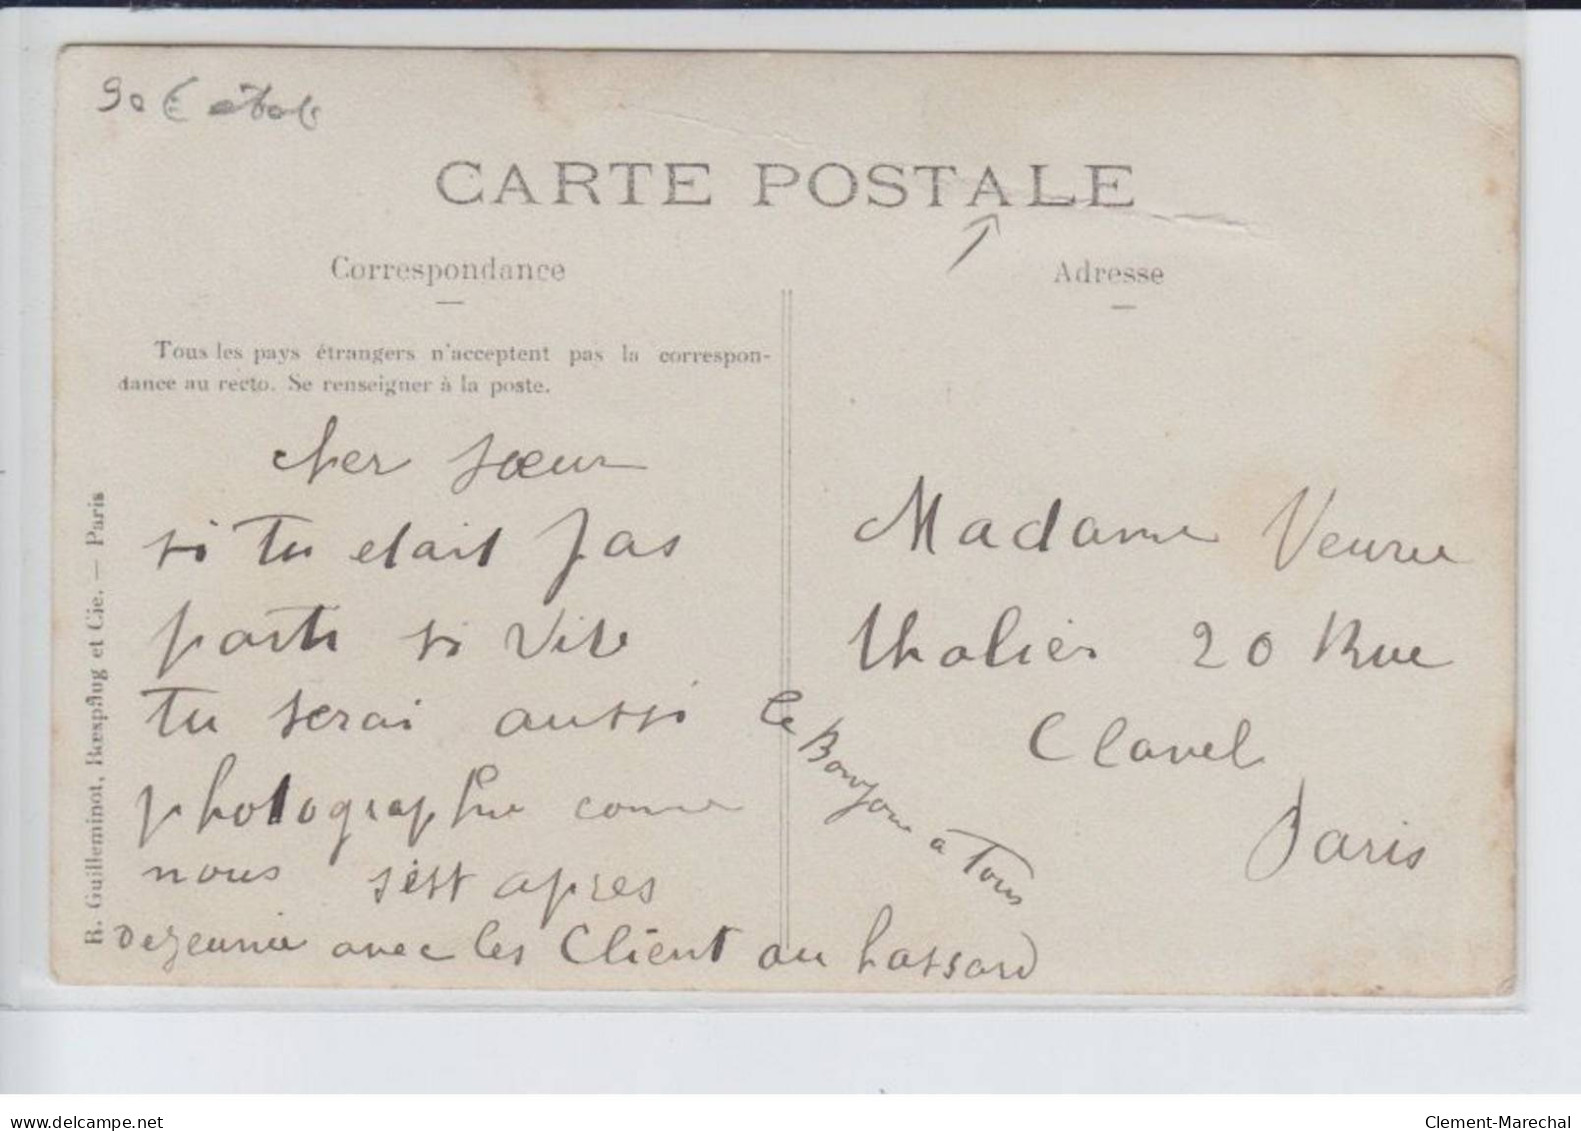 90€
CARTE POSTALE
Correspondance
Adresse
Tous les pays étrangers n'acceptent pas la correspon-
dance au recto. Se renseigner à la poste.
cher sœur
si tu etait pas
parti si vite
tu serai aussi
photographie comme
nous s'est apres
dezeunie avec les Client au hassard
le Bonjour a Tous
Madame Veuve
thalier 20 Rue
Clavel
Paris
R. Guilleminot, Bœspflug et Cie. — Paris
www.delcampe.net
Clement-Marechal